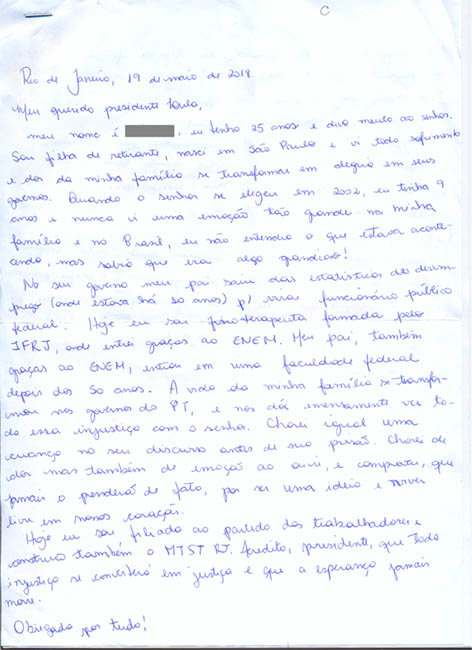 C
Rio de Janeiro, 19 de maio de 2018.
Meu querido presidente Lula,
meu nome é , eu tenho 25 anos e devo muito ao senhor.
Sou filha de retirante, nasci em São Paulo e vi todo sofrimento
e dor da minha família se transformar em alegria em seus
governos. Quando o senhor se elegeu em 2002, eu tinha 9
anos e nunca vi uma emoção tão grande na minha
família e no Brasil, eu não entendia o que estava aconte-
cendo, mas sabia que era algo grandioso!
No seu governo meu pai saiu das estatísticas de desem-
prego (onde estava há 10 anos) p/ virar funcionário público
federal. Hoje eu sou fisioterapeuta formada pelo
IFRJ, onde entrei graças ao ENEM. Meu pai, também
graças ao ENEM, entrou em uma faculdade federal
depois dos 50 anos. A vida da minha família se transfor-
mou nos governos do PT, e nos dói imensamente ver to-
da essa injustiça com o senhor. Chorei igual uma
criança no seu discurso antes de sua prisão. Chorei de
dor mas também de emoção ao ouvir, e comprovar, que
jamais o prenderão de fato, por ser uma ideia e viver
livre em nossos corações.
Hoje eu sou filiada ao partido dos trabalhadores e
construo também o MTST RJ. Acredito, presidente, que toda
injustiça se converterá em justiça e que a esperança jamais
morre.
Obrigada por tudo!